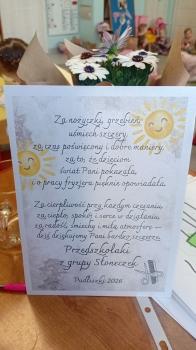 Za nożyczki, grzebień,
uśmiech szczery,
za czas poświęcony i dobre maniery,
za to, że dzieciom
świat Pani pokazała,
i o pracy fryzjera pięknie opowiadała.
Za cierpliwość przy każdym czesaniu,
za ciepło, spokój i serce w działaniu,
za radość, śmiechy i miłą atmosferę –
dziś dziękujemy Pani bardzo szczerze.
Przedszkolaki
z grupy Słoneczek
Pudliszki 2026